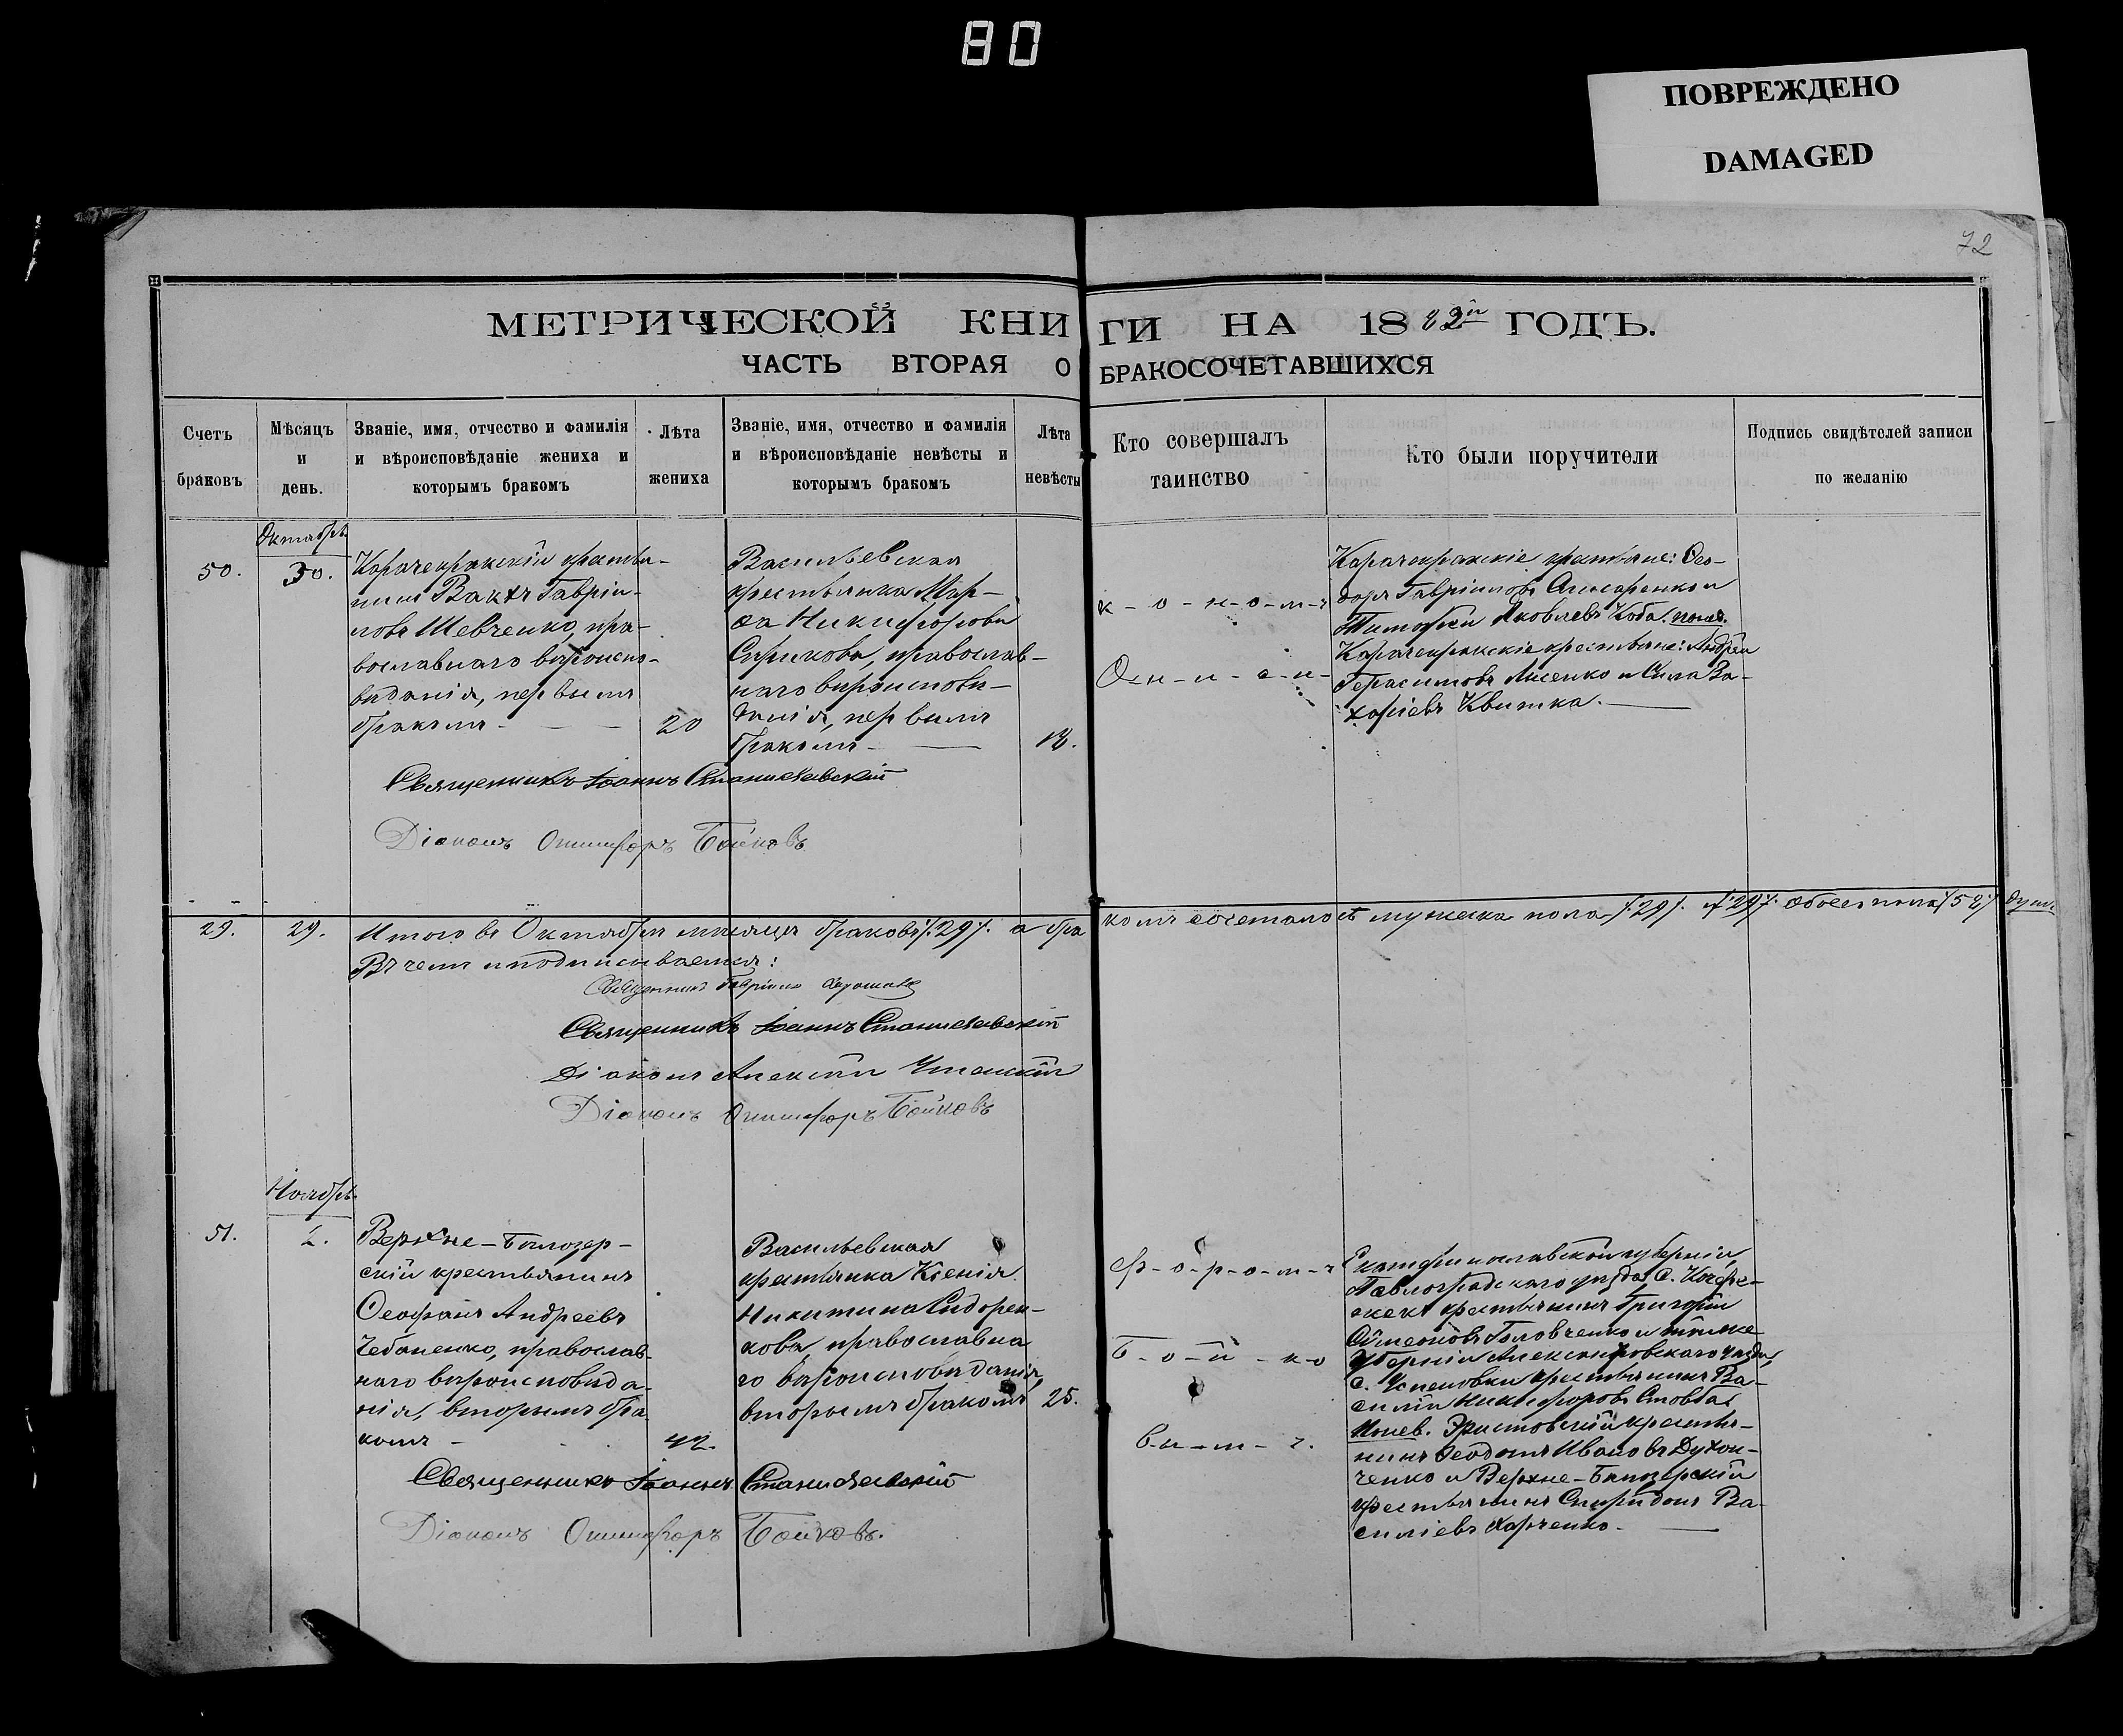 80
ПОВРЕЖДЕНО
DAMAGED
72
МЕТРИЧЕСКОЙ КНИГИ НА 1882й ГОДЪ.
ЧАСТЬ ВТОРАЯ О БРАКОСОЧЕТАВШИХСЯ
Счетъ
браковъ
Мѣсяцъ
и
день.
Званіе, имя, отчество и фамилія
и вѣроисповѣданіе жениха и
которымъ бракомъ
Лѣта
жениха
Званіе, имя, отчество и фамилія
и вѣроисповѣданіе невѣсты и
которымъ бракомъ
Лѣта
невѣсты
Кто совершалъ
таинство
Кто были поручители
Подпись свидѣтелей записи
по желанію
Октябрь
50.
30.
Карачекракскій крестья-
нинъ Вакхъ Гавріи-
ловъ Шевченко, пра-
вославнаго вѣроиспо-
вѣданія, первымъ
бракомъ
20
Васильевская
крестьянка Мар-
ѳа Никифорова
православ-
наго вѣроисповѣ-
данія, первымъ
бракомъ
18.
к-о-н-о-м-ъ
О-н-и-с-и-
Карачекракскіе крестьяне: Ѳео-
доръ Гавріиловъ и
Тимофей Яковлевъ Коба. понев.
Карачекракскіе крестьяне: Андрей
Герасимовъ Лисенко и Сила За-
харіевъ Квитка.
Священникъ Іоаннъ Станиславскій
Діаконъ Онисифоръ Бойковъ
29.
29.
Итого въ Октябрѣ мѣсяцѣ браковъ ./.29./. а бракомъ сочеталось мужеска пола ./.29./. ж ./.29./. обоего пола ./.58./. душъ
Въ чемъ и подписываемся:
Священникъ Гавріилъ
Священникъ Іоаннъ Станиславскій
Діаконъ Алексій
Діаконъ Онисифоръ Бойковъ
Ноябрь.
51.
2.
Верхне-Бѣлозер-
скій крестьянинъ
Ѳеофанъ Андреевъ
Чебаненко, православ-
наго вѣроисповѣда-
нія, вторымъ бра-
комъ
42.
Васильевская
крестьянка Ксенія
Никитина Сидорен-
кова, православна
го вѣроисповѣданія,
вторымъ бракомъ
25.
ф-о-р-о-м-ъ
Б-о-й-ко
в-ы-м-ъ.
Екатеринославской губерніи,
Павлоградскаго уѣзда, с.
крестьянинъ Григорій
Сѵмеоновъ Головченко и тойже
губерніи Александровскаго уѣзда,
с. Успеновки крестьянинъ Ва-
силій Никифоровъ Стовба.
Понев. крестья-
нинъ Ѳеодотъ Ивановъ Духон-
ченко и Верхне-Бѣлозерскій
крестьянинъ Спиридонъ Ва-
силіевъ Харченко.
Священникъ Іоаннъ Станиславскій
Діаконъ Онисифоръ Бойковъ.